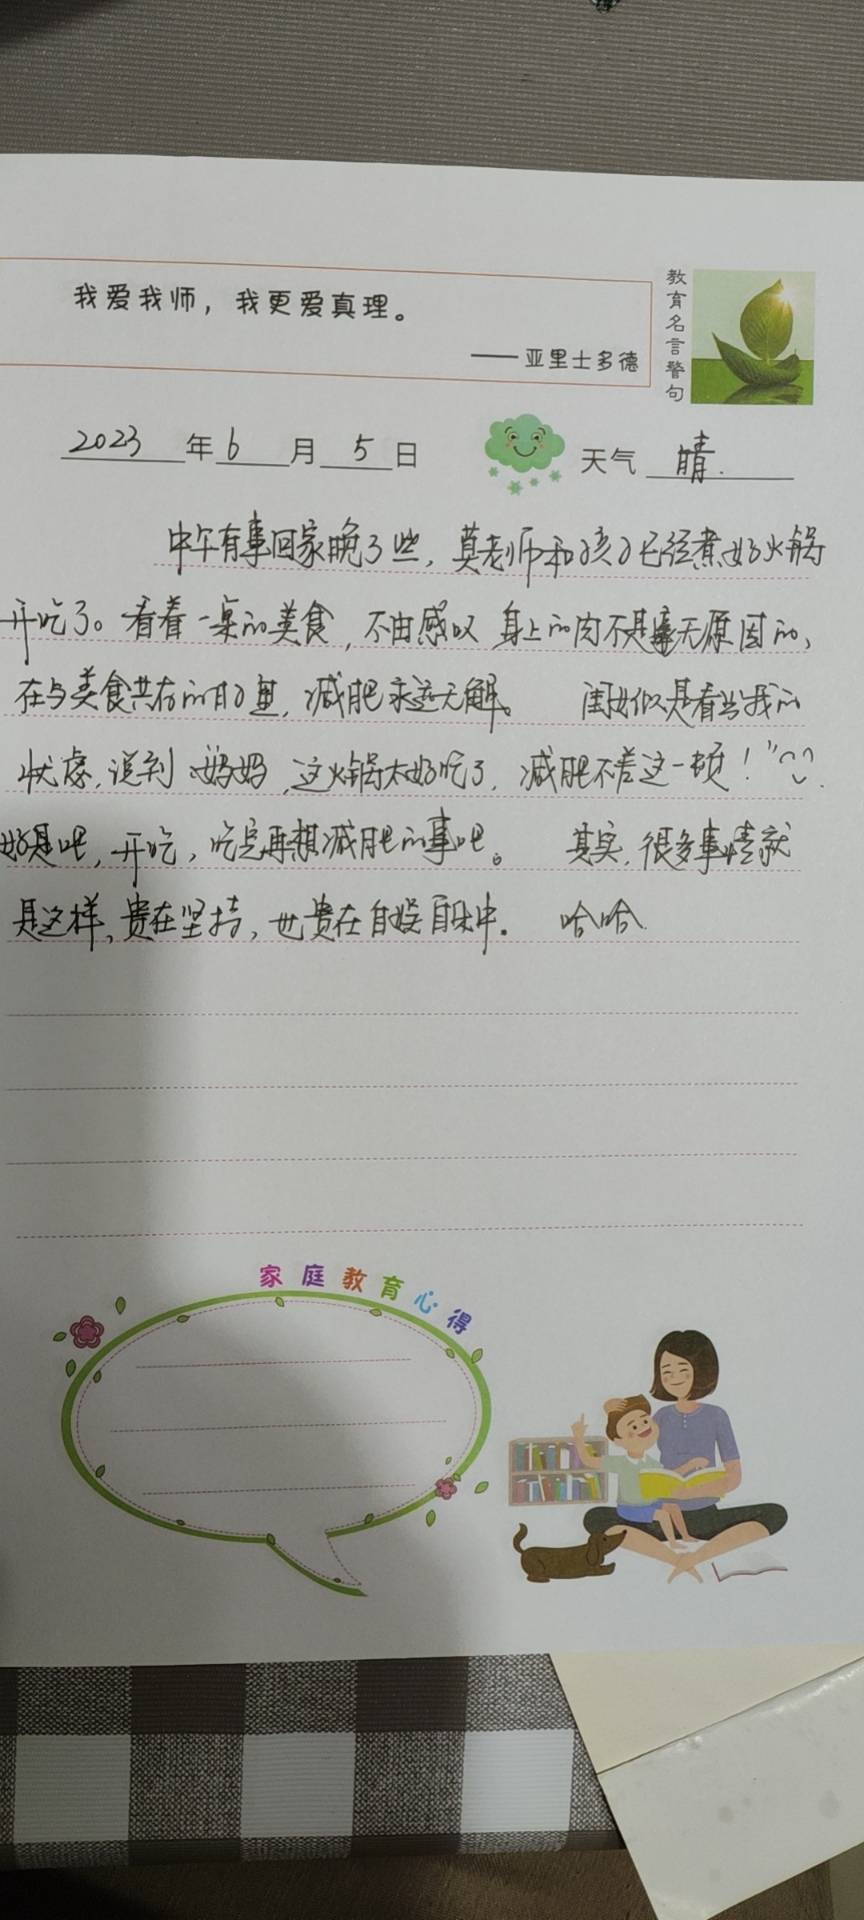 我爱我师，我更爱真理。
——亚里士多德
教育名言警句
2023年6月5日 天气 晴.
中午有事回家晚了些，莫老师和孩子已经煮好火锅
开吃了。看着一桌的美食，不由感叹 身上的肉不是无原因的，
在与美食共存的日子里，减肥永远无解。 闺女似是看出我的
忧虑，说到 妈妈，这火锅太好吃了，减肥不差这一顿！”
好是吧，开吃，吃完再想减肥的事吧。 其实，很多事情就
是这样，贵在坚持，也贵在自娱自乐中. 哈哈
家庭教育心得